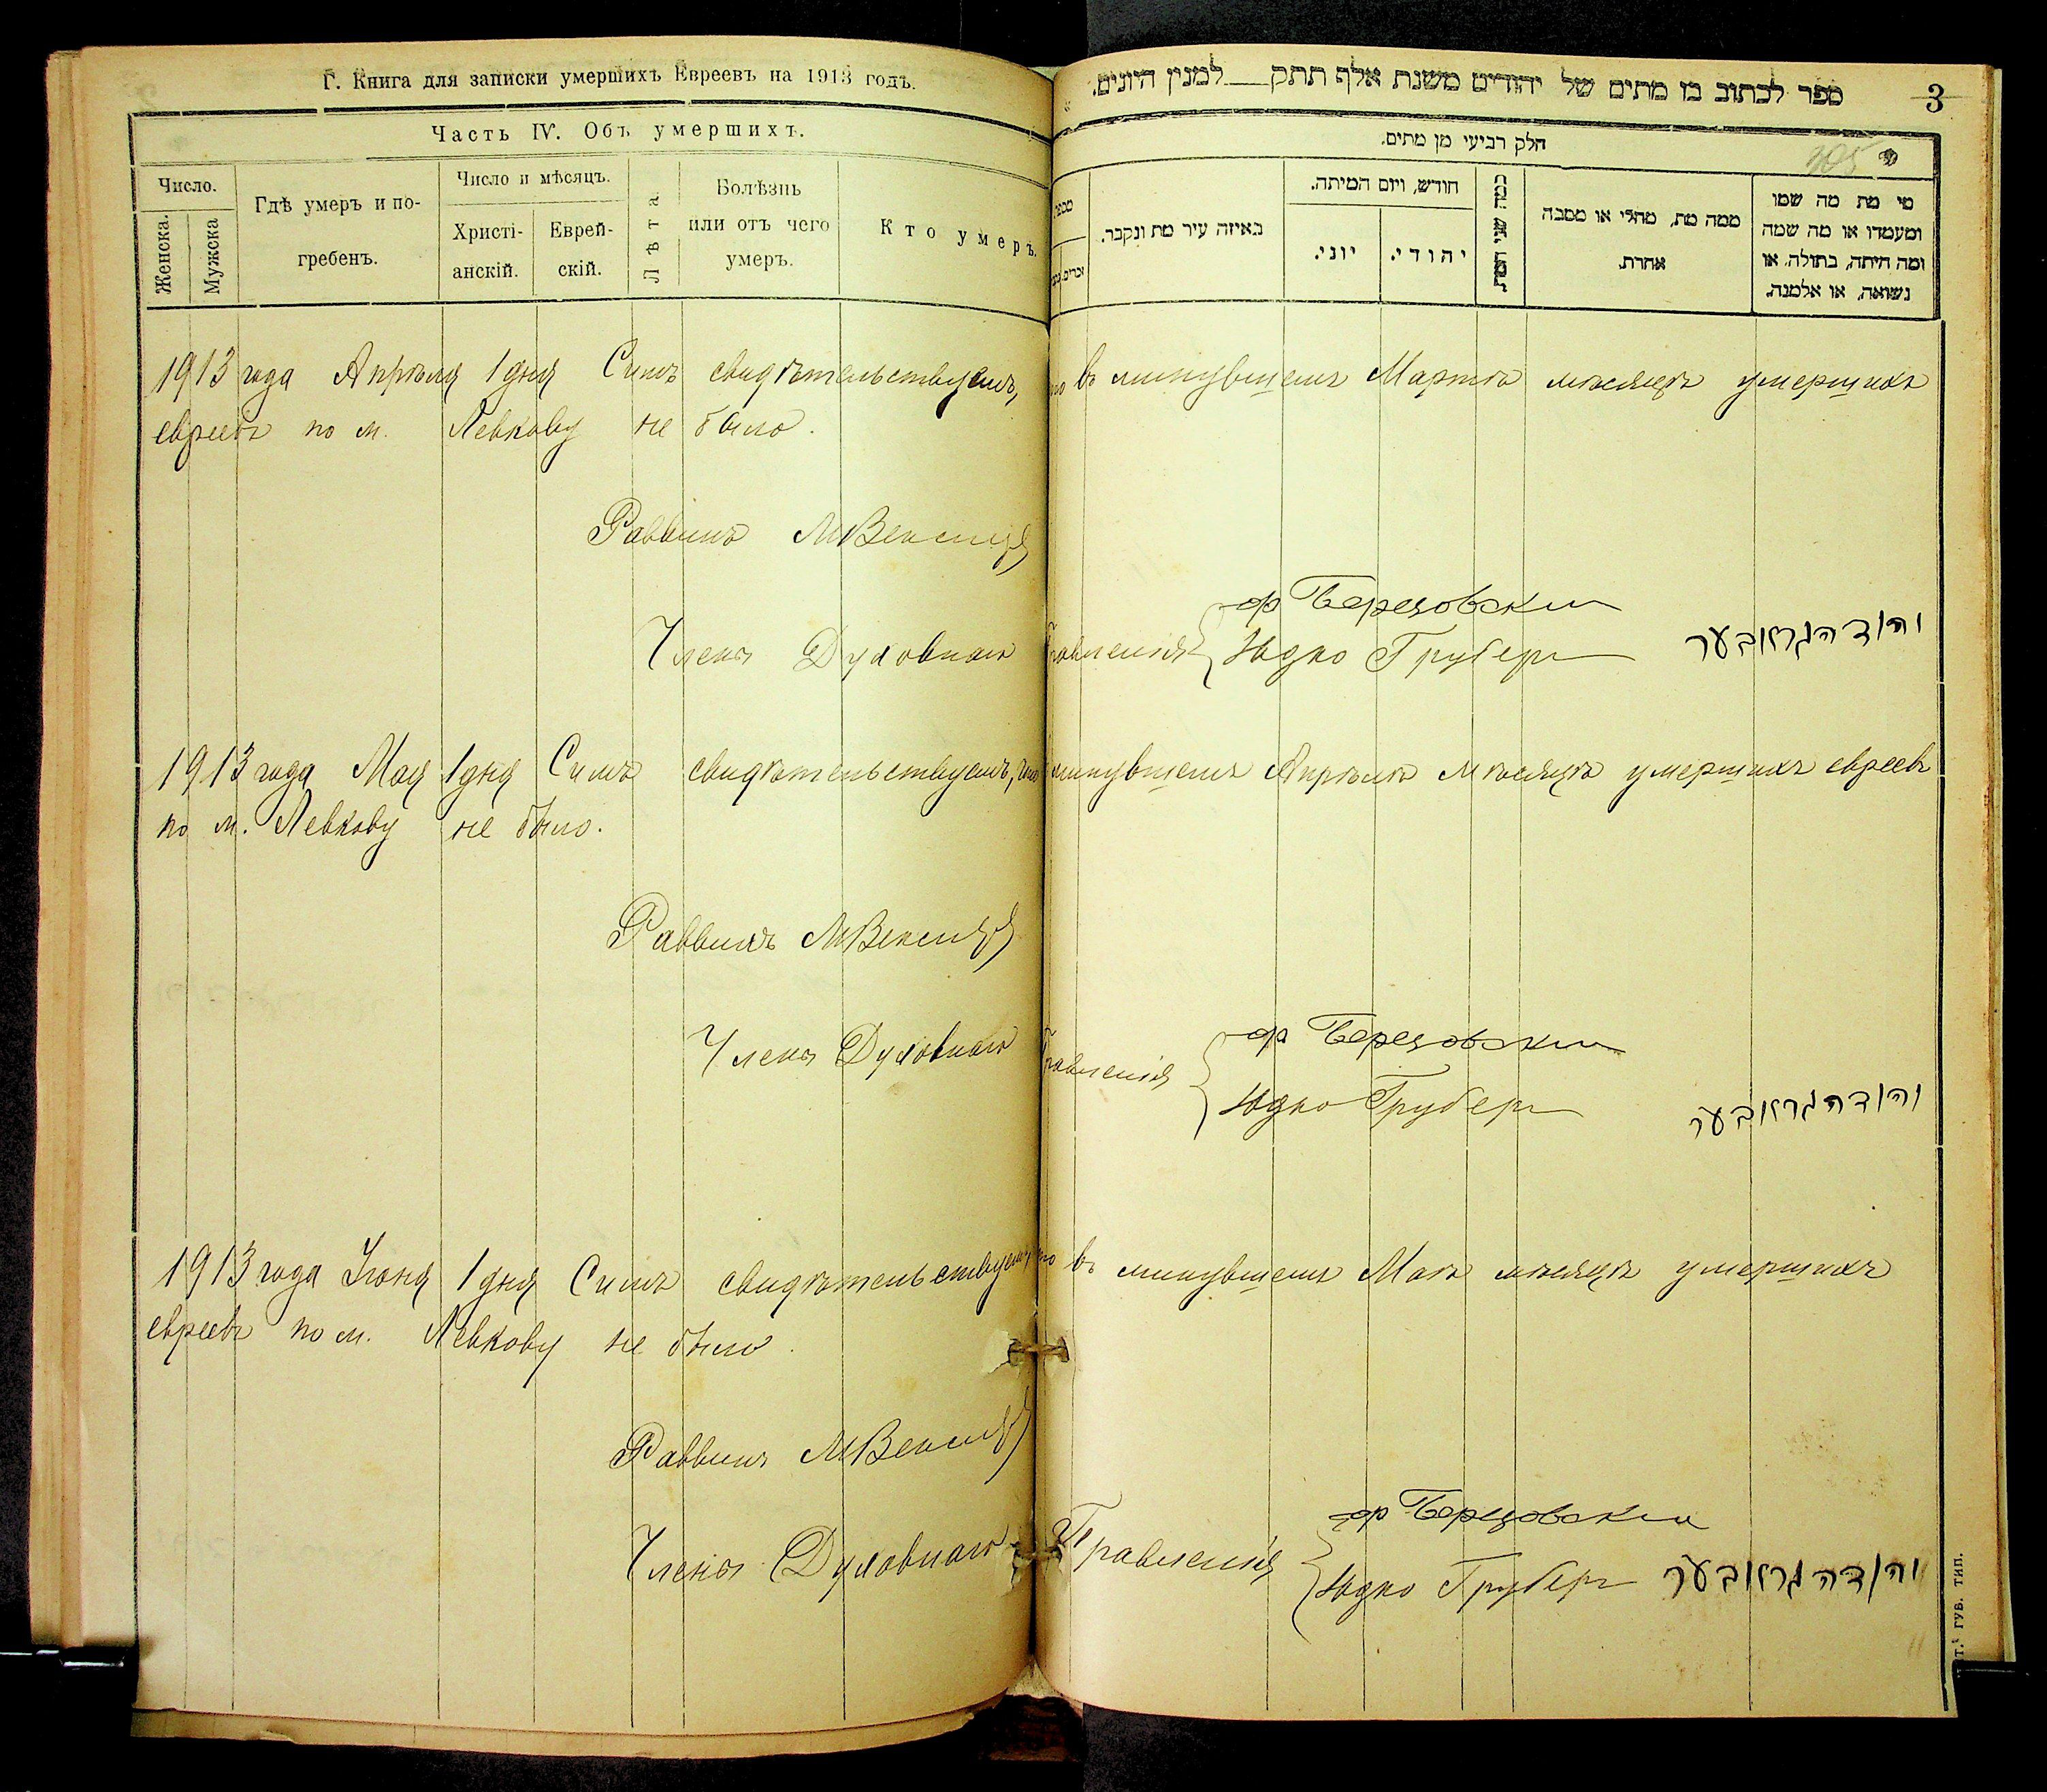 Г. Книга для записки умершихъ Евреевъ на 1913 годъ.
Часть IV. Объ умершихъ.
Число.
Женска.
Мужска
Гдѣ умеръ и по-
гребенъ.
Число и мѣсяцъ.
Христі-
анскій.
Еврей-
скій.
Лѣта
Болѣзнь
или отъ чего
умеръ.
Кто умеръ.
ספר לכתוב בו מתים של יהודים משנת אלף תתק למנין היונים.
3
חלק רביעי מן מתים.
305
באיזה עיר מת ונקבר.
חודש, ויום המיתה.
יוני.
יהודי.
כמה שני המת.
ממה מת, מחלי או מסבה
אחרת.
מי מת מה שמו
ומעמדו או מה שמה
ומה היתה, בתולה, או
נשואה, או אלמנה.
1913 года Апрѣля 1 дня Симъ свидѣтельствуемъ, что въ минувшемъ Мартѣ мѣсяцѣ умершихъ
евреевъ по м. Левкову не было.
Раввинъ М Векслеръ
Члены Духовнаго Правленія
Березовскій
Юдко Груберг
יהודה גרובער
1913 года Мая 1 дня Симъ свидѣтельствуемъ, что минувшемъ Апрѣлѣ мѣсяцѣ умершихъ евреевъ
по м. Левкову не было.
Раввинъ М Векслеръ
Члены Духовнаго Правленія
Березовскій
Юдко Груберг
יהודה גרובער
1913 года Іюня 1 дня Симъ свидѣтельствуемъ, что въ минувшемъ Маѣ мѣсяцѣ умершихъ
евреевъ по м. Левкову не было.
Раввинъ М Векслеръ
Члены Духовнаго Правленія
Березовскій
Юдко Груберг
יהודה גרובער
губ. тип.